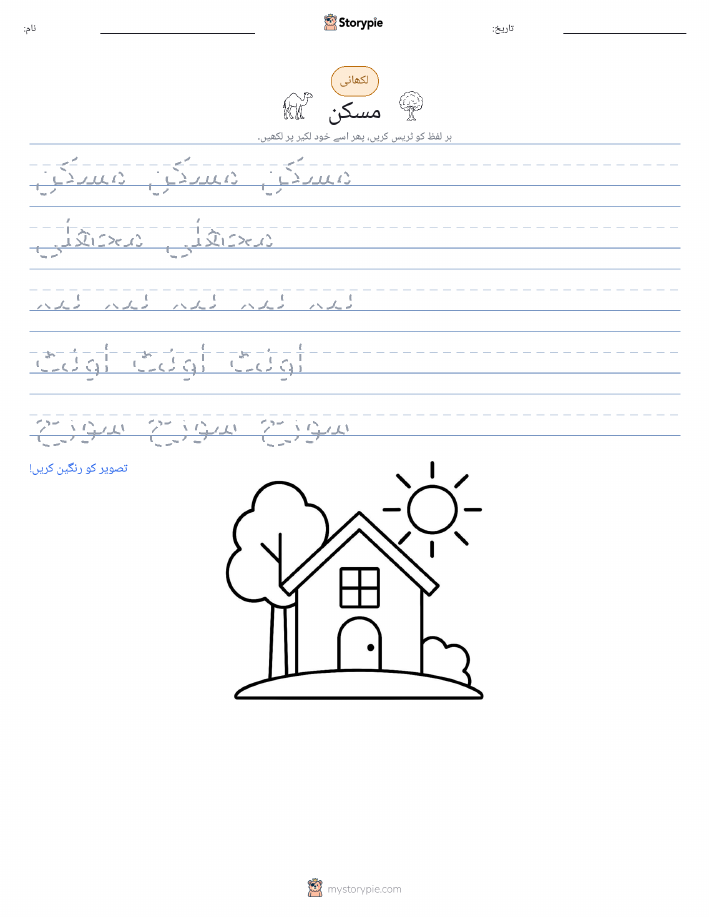 نام: Storypie تاریخ:
لکھائی
مسکن
ہر لفظ کو ٹریس کریں، پھر اسے خود لکیر پر لکھیں۔
مسکن مسکن مسکن
اونٹ اونٹ اونٹ
سورج سورج سورج
تصویر کو رنگین کریں!
mystorypie.com